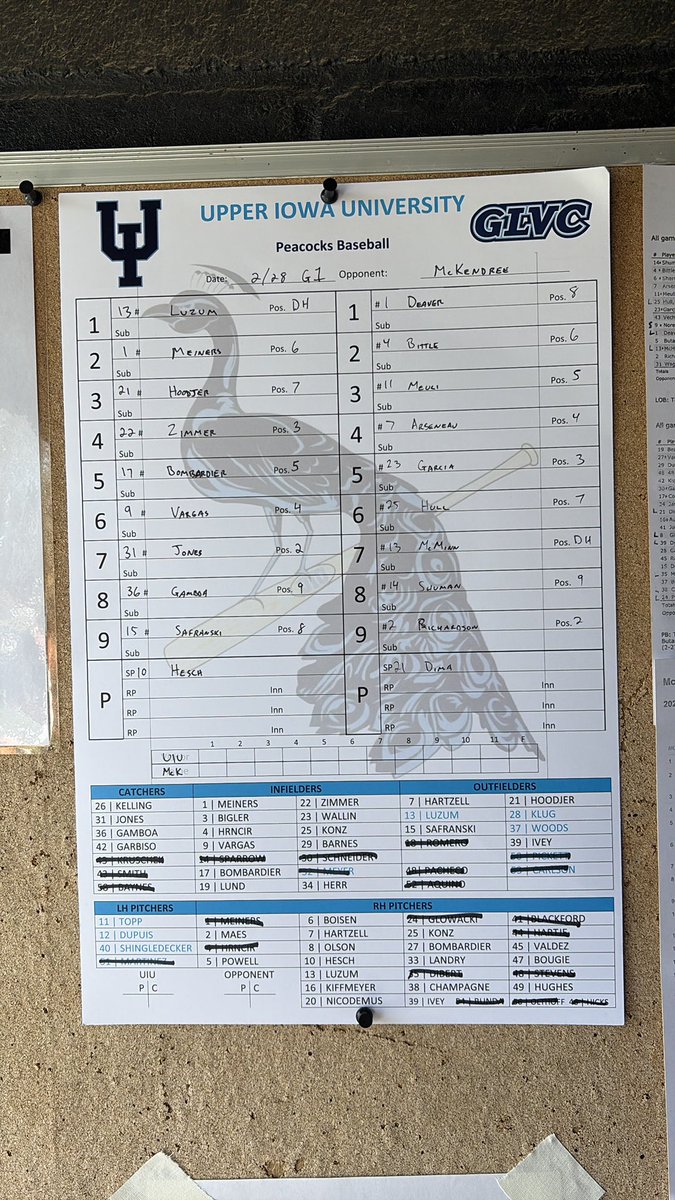 UPPER IOWA UNIVERSITY
UI
GLVC
Peacocks Baseball
Date: 2/28 G1 Opponent: McKENDREE
1 13 # LUZUM Pos. DH 1 #1 DEAVER Pos. 8
Sub Sub
2 1 # MEINERS Pos. 6 2 #4 BITTLE Pos. 6
Sub Sub
3 21 # HOODJER Pos. 7 3 #11 MEULI Pos. 5
Sub Sub
4 22# ZIMMER Pos. 3 4 #7 ARSENEAU Pos. 4
Sub Sub
5 17 # BOMBARDIER Pos. 5 5 #23 GARCIA Pos. 3
Sub Sub
6 9 # VARGAS Pos. 4 6 #25 HULL Pos. 7
Sub Sub
7 31 # JONES Pos. 2 7 #13 McMINN Pos. DH
Sub Sub
8 36 # GAMBOA Pos. 9 8 #14 SHUMAN Pos. 9
Sub Sub
9 15 # SAFRANSKI Pos. 8 9 #2 RICHARDSON Pos. 2
Sub Sub
P SP 10 HESCH P SP 21 DIMA
RP Inn RP Inn
RP Inn RP Inn
RP Inn RP Inn
1 2 3 4 5 6 7 8 9 10 11 F
UIU
McK
CATCHERS INFIELDERS OUTFIELDERS
26 | KELLING 1 | MEINERS 22 | ZIMMER 7 | HARTZELL 21 | HOODJER
31 | JONES 3 | BIGLER 23 | WALLIN 13 | LUZUM 28 | KLUG
36 | GAMBOA 4 | HRNCIR 25 | KONZ 15 | SAFRANSKI 37 | WOODS
42 | GARBISO 9 | VARGAS 29 | BARNES 18 | ROMERO 39 | IVEY
43 | KRUSCHEN 14 | SPARROW 30 | SCHNEIDER
43 | SMITH 17 | BOMBARDIER 32 | MEYER 48 | PACHECO CARLSON
50 | BAYNES 19 | LUND 34 | HERR 52 | AQUINO
LH PITCHERS RH PITCHERS
11 | TOPP 1 | MEINERS 6 | BOISEN 24 | GLOWACKI 41 | BLACKFORD
12 | DUPUIS 2 | MAES 7 | HARTZELL 25 | KONZ 44 | HARTJE
40 | SHINGLEDECKER 4 | HRNCIR 8 | OLSON 27 | BOMBARDIER 45 | VALDEZ
51 | MARTINEZ 5 | POWELL 10 | HESCH 33 | LANDRY 47 | BOUGIE
UIU OPPONENT 13 | LUZUM 35 | DIBERT 48 | STEVENS
P | C P | C 16 | KIFFMEYER 38 | CHAMPAGNE 49 | HUGHES
20 | NICODEMUS 39 | IVEY